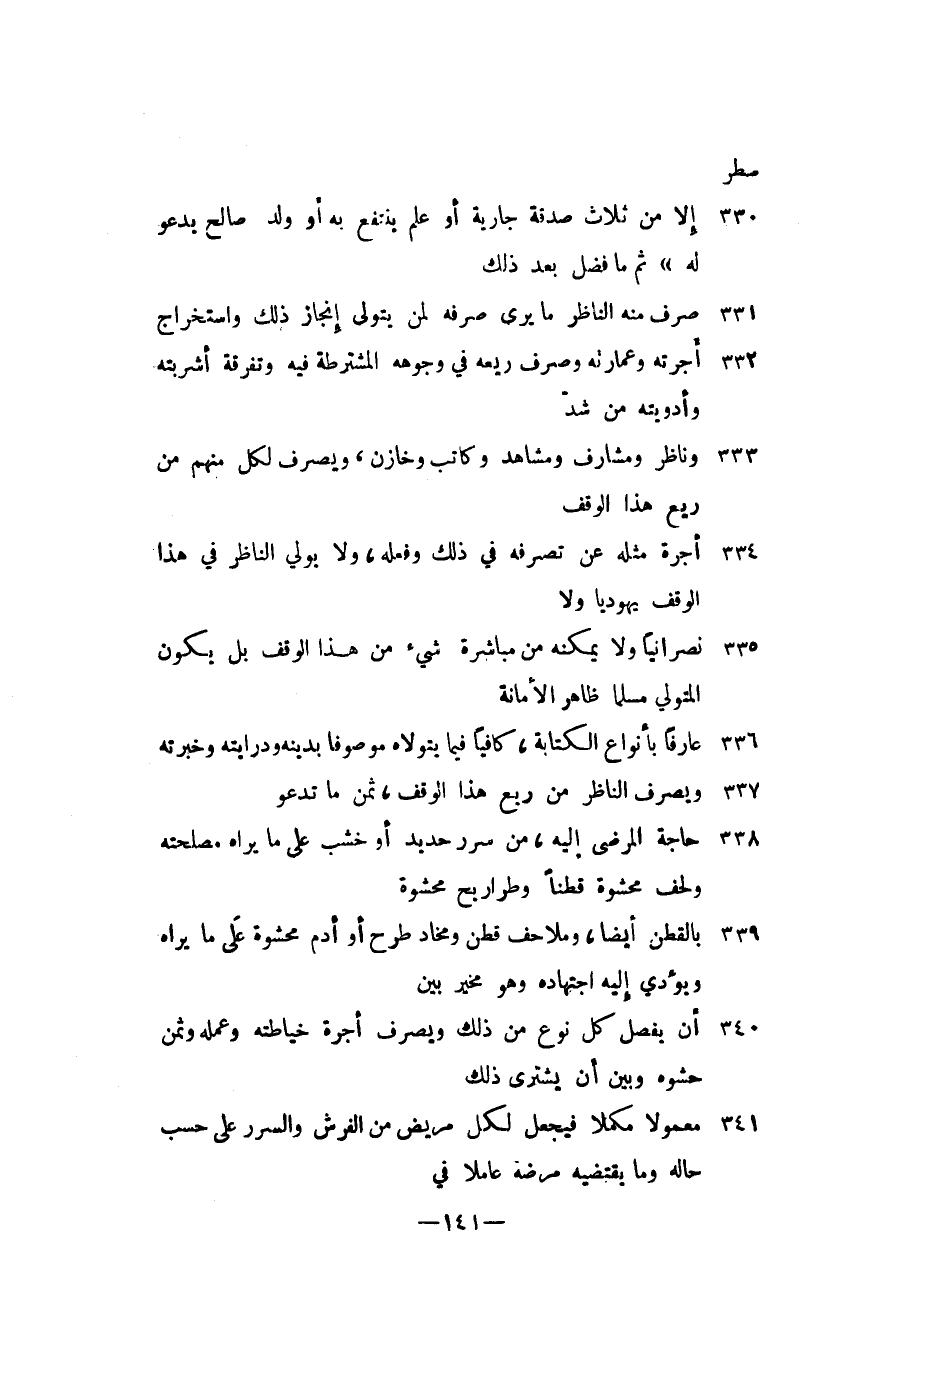 سطر
٣٣٠ إلا من ثلاث صدقة جارية أو علم ينتفع به أو ولد صالح يدعو
له » ثم ما فضل بعد ذلك
٣٣١ صرف منه الناظر ما يرى صرفه لمن يتولى إنجاز ذلك واستخراج
٣٣٢ أجرته وعمارته وصرف ريعه في وجوهه المشترطة فيه وتفرقة أشربته
وأدويته من شدّ
٣٣٣ وناظر ومشارف ومشاهد وكاتب وخازن ، ويصرف لكل منهم من
ريع هذا الوقف
٣٣٤ أجرة مثله عن تصرفه في ذلك وفعله ، ولا يولي الناظر في هذا
الوقف يهوديا ولا
٣٣٥ نصرانياً ولا يمكنه من مباشرة شيء من هذا الوقف بل يكون
المتولي مسلما ظاهر الأمانة
٣٣٦ عارفاً بأنواع الكتابة ، كافياً فيما يتولاه موصوفا بدينه ودرايته وخبرته
٣٣٧ ويصرف الناظر من ريع هذا الوقف ، ثمن ما تدعو
٣٣٨ حاجة المرضى إليه ، من سرر حديد أو خشب على ما يراه مصلحته
ولحف محشوة قطناً وطراريح محشوة
٣٣٩ بالقطن أيضا ، وملاحف قطن ومخاد طرح أو أدم محشوة على ما يراه
ويؤدي إليه اجتهاده وهو مخير بين
٣٤٠ أن يفصل كل نوع من ذلك ويصرف أجرة خياطته وعمله وثمن
حشوه وبين أن يشترى ذلك
٣٤١ معمولا مكملا فيجعل لكل مريض من الفرش والسرر على حسب
حاله وما يقتضيه مرضه عاملا في
—١٤١—